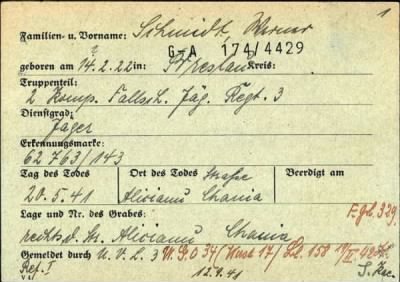 1
Familien- u. Vorname: Schmidt, Werner
? G-A 174/4429
geboren am 14.2.22 in: Breslau Kreis:
Truppenteil:
2 Komp. Fallsch. Jäg. Regt. 3
Dienstgrad:
Jäger
Erkennungsmarke:
62 763/143
Tag des Todes Ort des Todes Straße Beerdigt am
20.5.41 Alicianu Chania
Lage und Nr. des Grabes: F.gl. 329
rechts d. Str. Alicianu Chania
Gemeldet durch U.V.L. 3 W.G.O 34 (Wast 17) Ll. 158
Ref. I 12.9.41